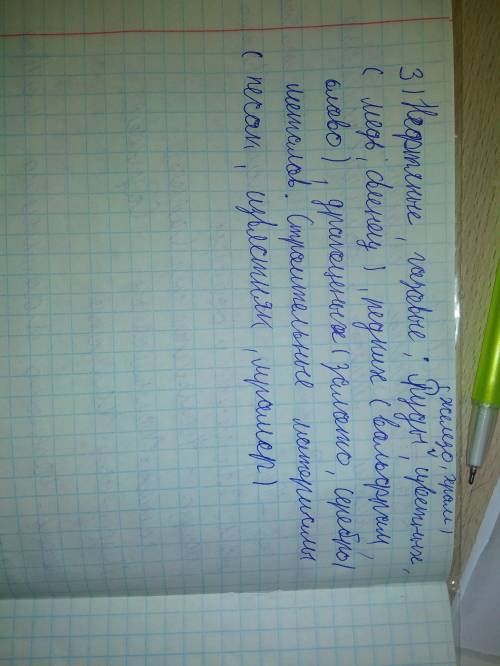 (железо, хром)
3) Нефтяные, газовые; Руды, цветных,
(медь, свинец), редких (вольфрам,
олово), драгоценных (золото, серебро)
металлов. Строительные материалы
(песок, известняк, мрамор)